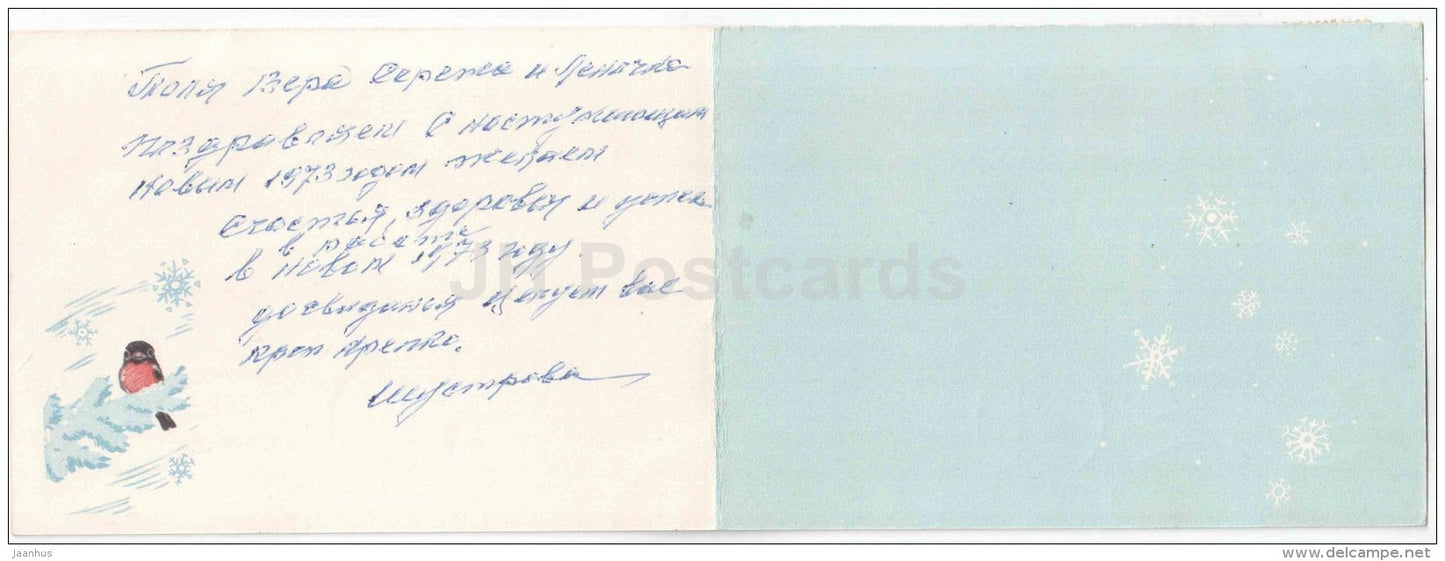 Толя Вера Сережа и Леночка
Поздравляем с наступающим
Новым 1973 годом желаем
счастья, здоровья и успеха
в работе
в новом 1973 году
досвиданья целуем вас
креп крепко.
Шустрова
JH Postcards
Jaanhus
www.delcampe.net